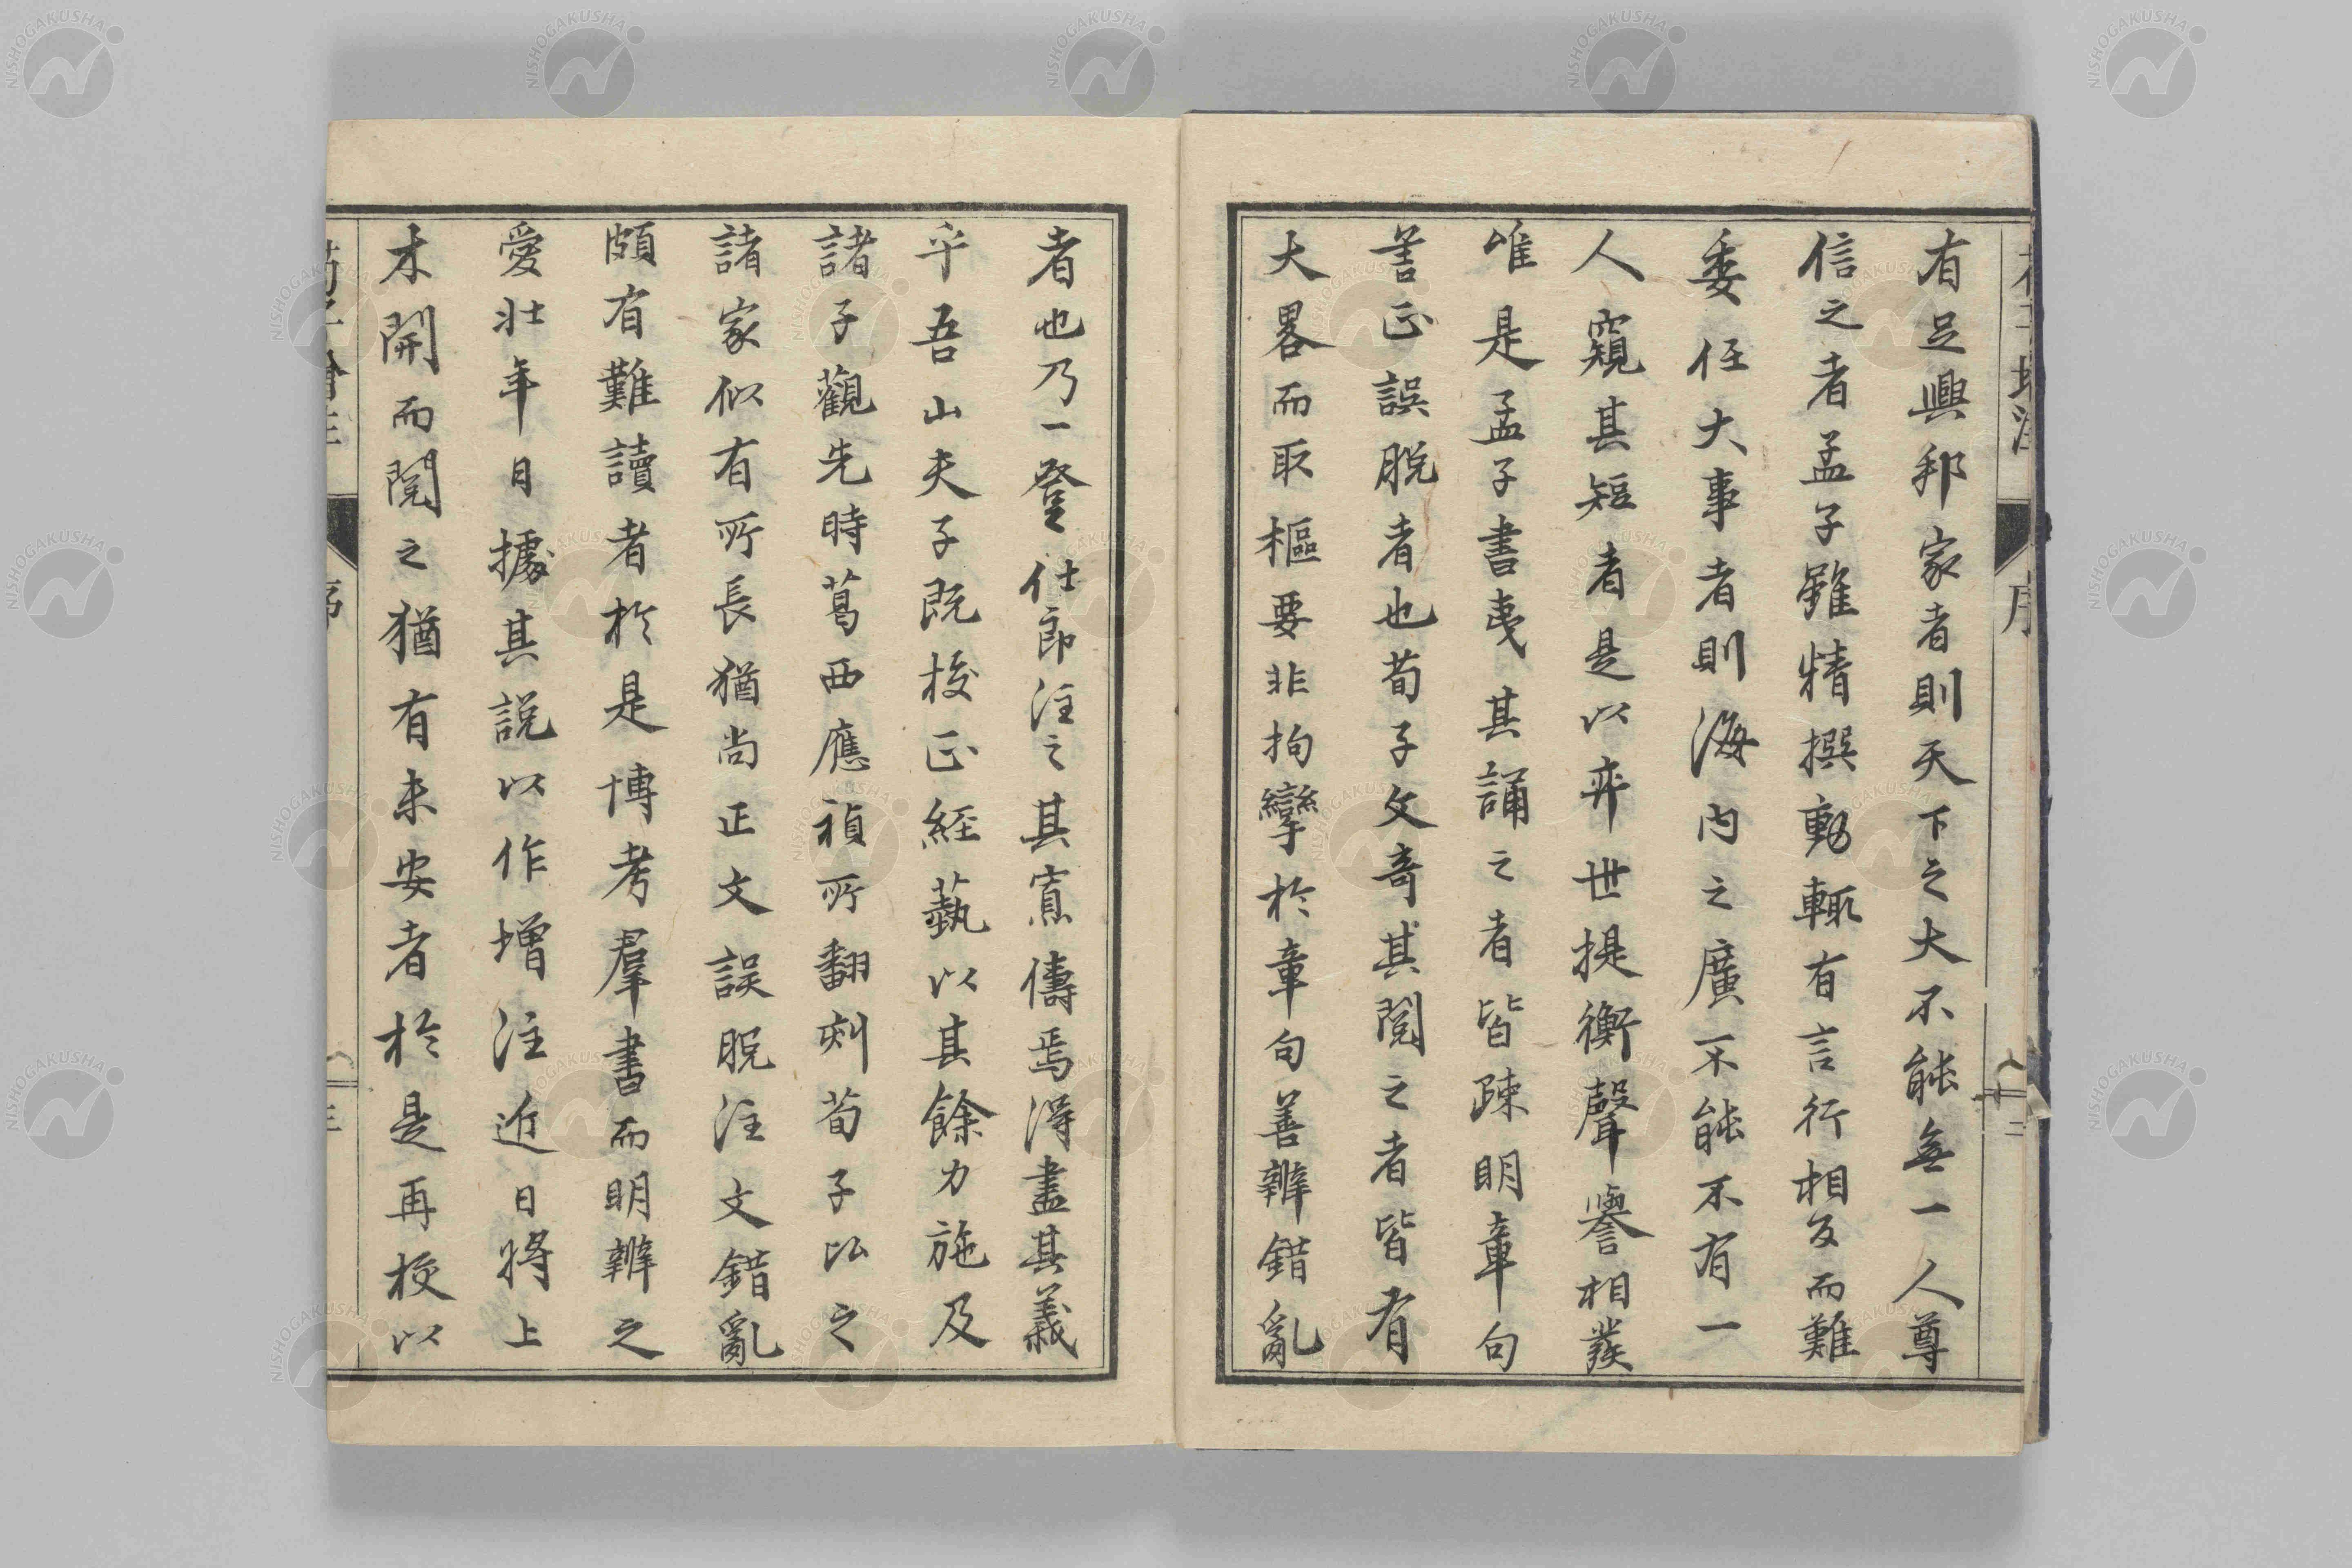 有足興邦家者則天下之大不能無一人尊
信之者孟子雖精撰動輙有言行相反而難
委任大事者則海内之廣不能不有一
人窺其短者是以弈世提衡聲譽相
唯是孟子書夷其誦之者皆疎明章句
善正誤脱者也荀子文奇其閲之者皆有
大畧而取樞要非拘攣於章句善辨錯亂
者也乃一登仕郎注之其寡儔焉得盡其義
乎吾山夫子既挍正經藝以其餘力施及
諸子觀先時葛西應禎所翻刻荀子以之
諸家似有所長猶尚正文誤脱注文錯亂
頗有難讀者於是博考羣書而明辨之
愛壯年日據其説以作增注近日將上
木開而閲之猶有未安者於是再挍以
序
NISHOGAKUSHA